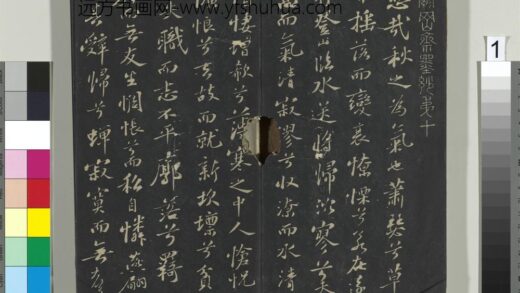 远方书画网-www.yfshuhua.com
1
岡齋墨妙弟十
悲哉秋之為氣也蕭瑟兮草
搖落而變衰憭慄兮若在遠
登山臨水送將歸泬寥
而氣清寂寥兮收潦而水清
悽增欷兮薄寒之中人愴怳
悢兮去故而就新坎壈兮貧
失職而志不平廓落兮羈
無友生惆悵兮而私自憐燕翩
辭歸兮蟬寂寞而無